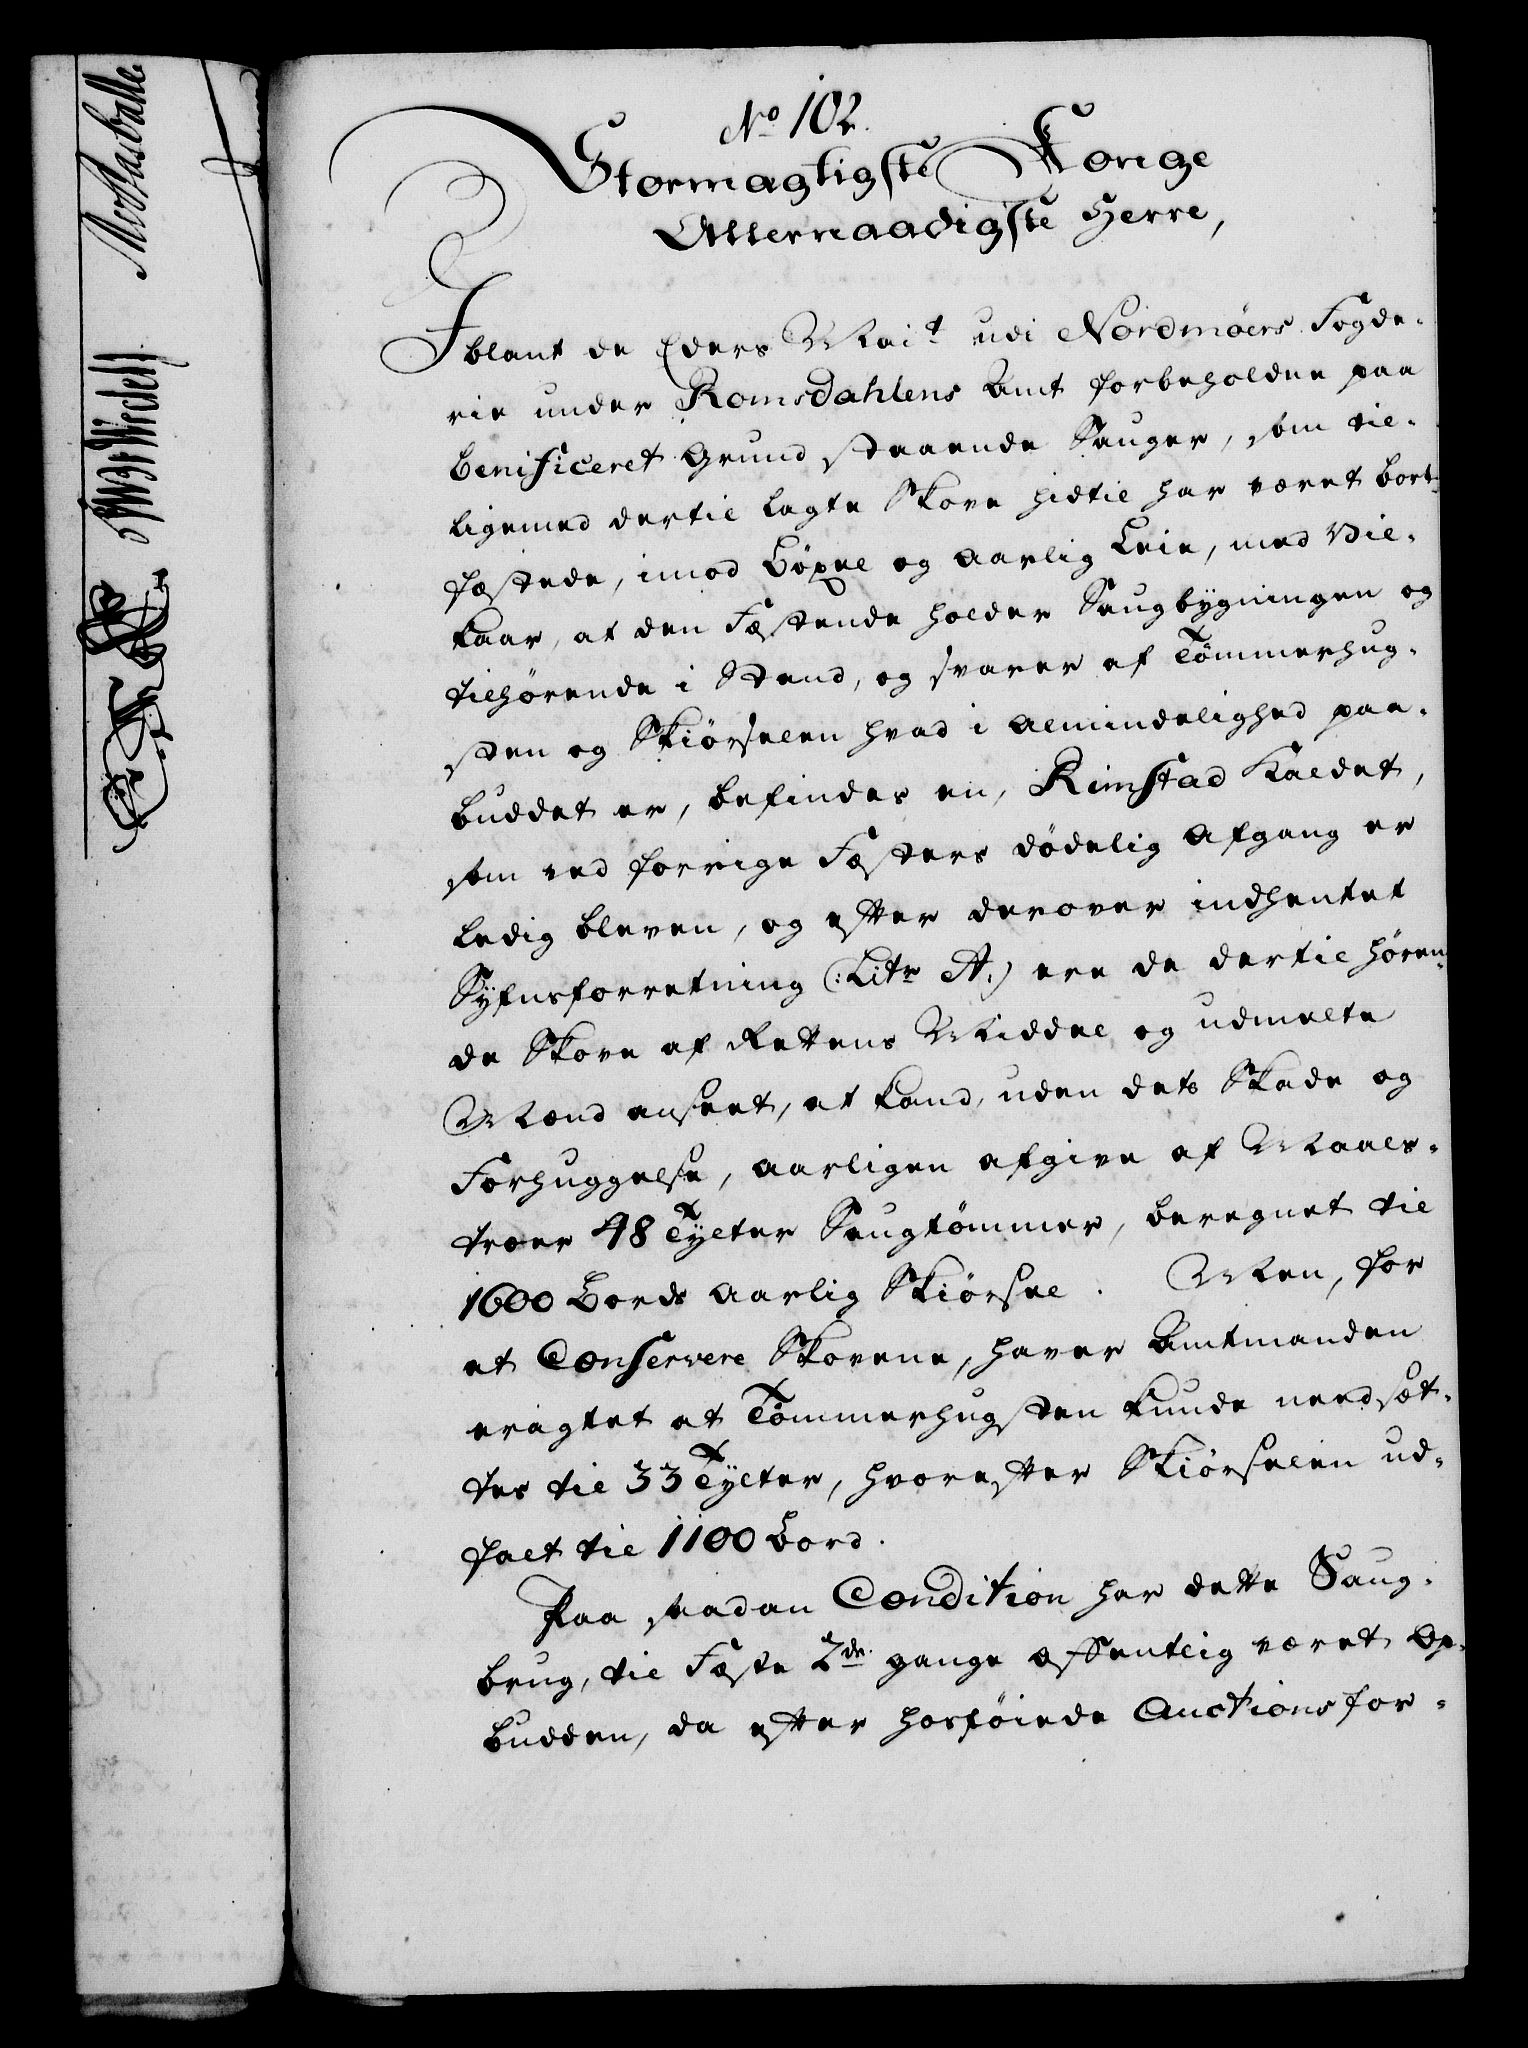 No 102.
Stormagtigste Konge
Allernaadigste Herre,
Iblant de Eders Mait udi Nordmöers Fogde-
rie under Romsdahlens Amt forbeholdne paa
benificeret Grund staaende Sauger, som til-
ligemed dertil lagte Skove hidtil har været bort-
fæstede, imod Böxel og aarlig Leie, med Vil-
kaar, at den Fæstende holder Saugbygningen og
tilhørende i Stand, og svarer af Tömmerhug-
sten og Skiörselen hvad i Almindelighed paa-
buddet er, befindes en, Rimstad Kaldet,
som ved forrige Fæsters dödelig Afgang er
ledig bleven, og efter derover indhentet
Syfnsforretning (: Litr A.) ere de dertil hören-
de Skove af Rettens Middel og udmelte
Mænd anseet, at kand, uden dets Skade og
Forhuggelse, aarligen afgive af Maals-
træer 48 Tylter Saugtömmer, beregnet til
1600 Bords aarlig Skiörsel. Men, for
at Conservere Skovene, haver Amtmanden
eragtet at Tömmerhugsten kunde nedsæt-
tes til 33 Tylter, hvorefter Skiörselen ud-
falt til 1100 Bord.
Paa saadan Condition har dette Saug-
brug, til Fæste 2de gange offentlig været op-
budden, da efter hosföiede Auctionsfor-